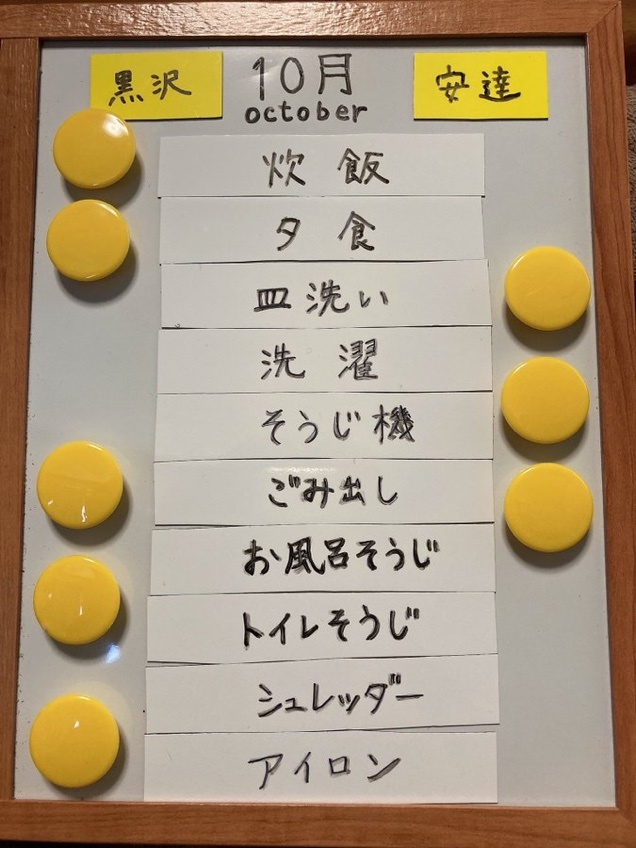 黒沢
10月
october
安達
炊飯
夕食
皿洗い
洗濯
そうじ機
ごみ出し
お風呂そうじ
トイレそうじ
シュレッダー
アイロン